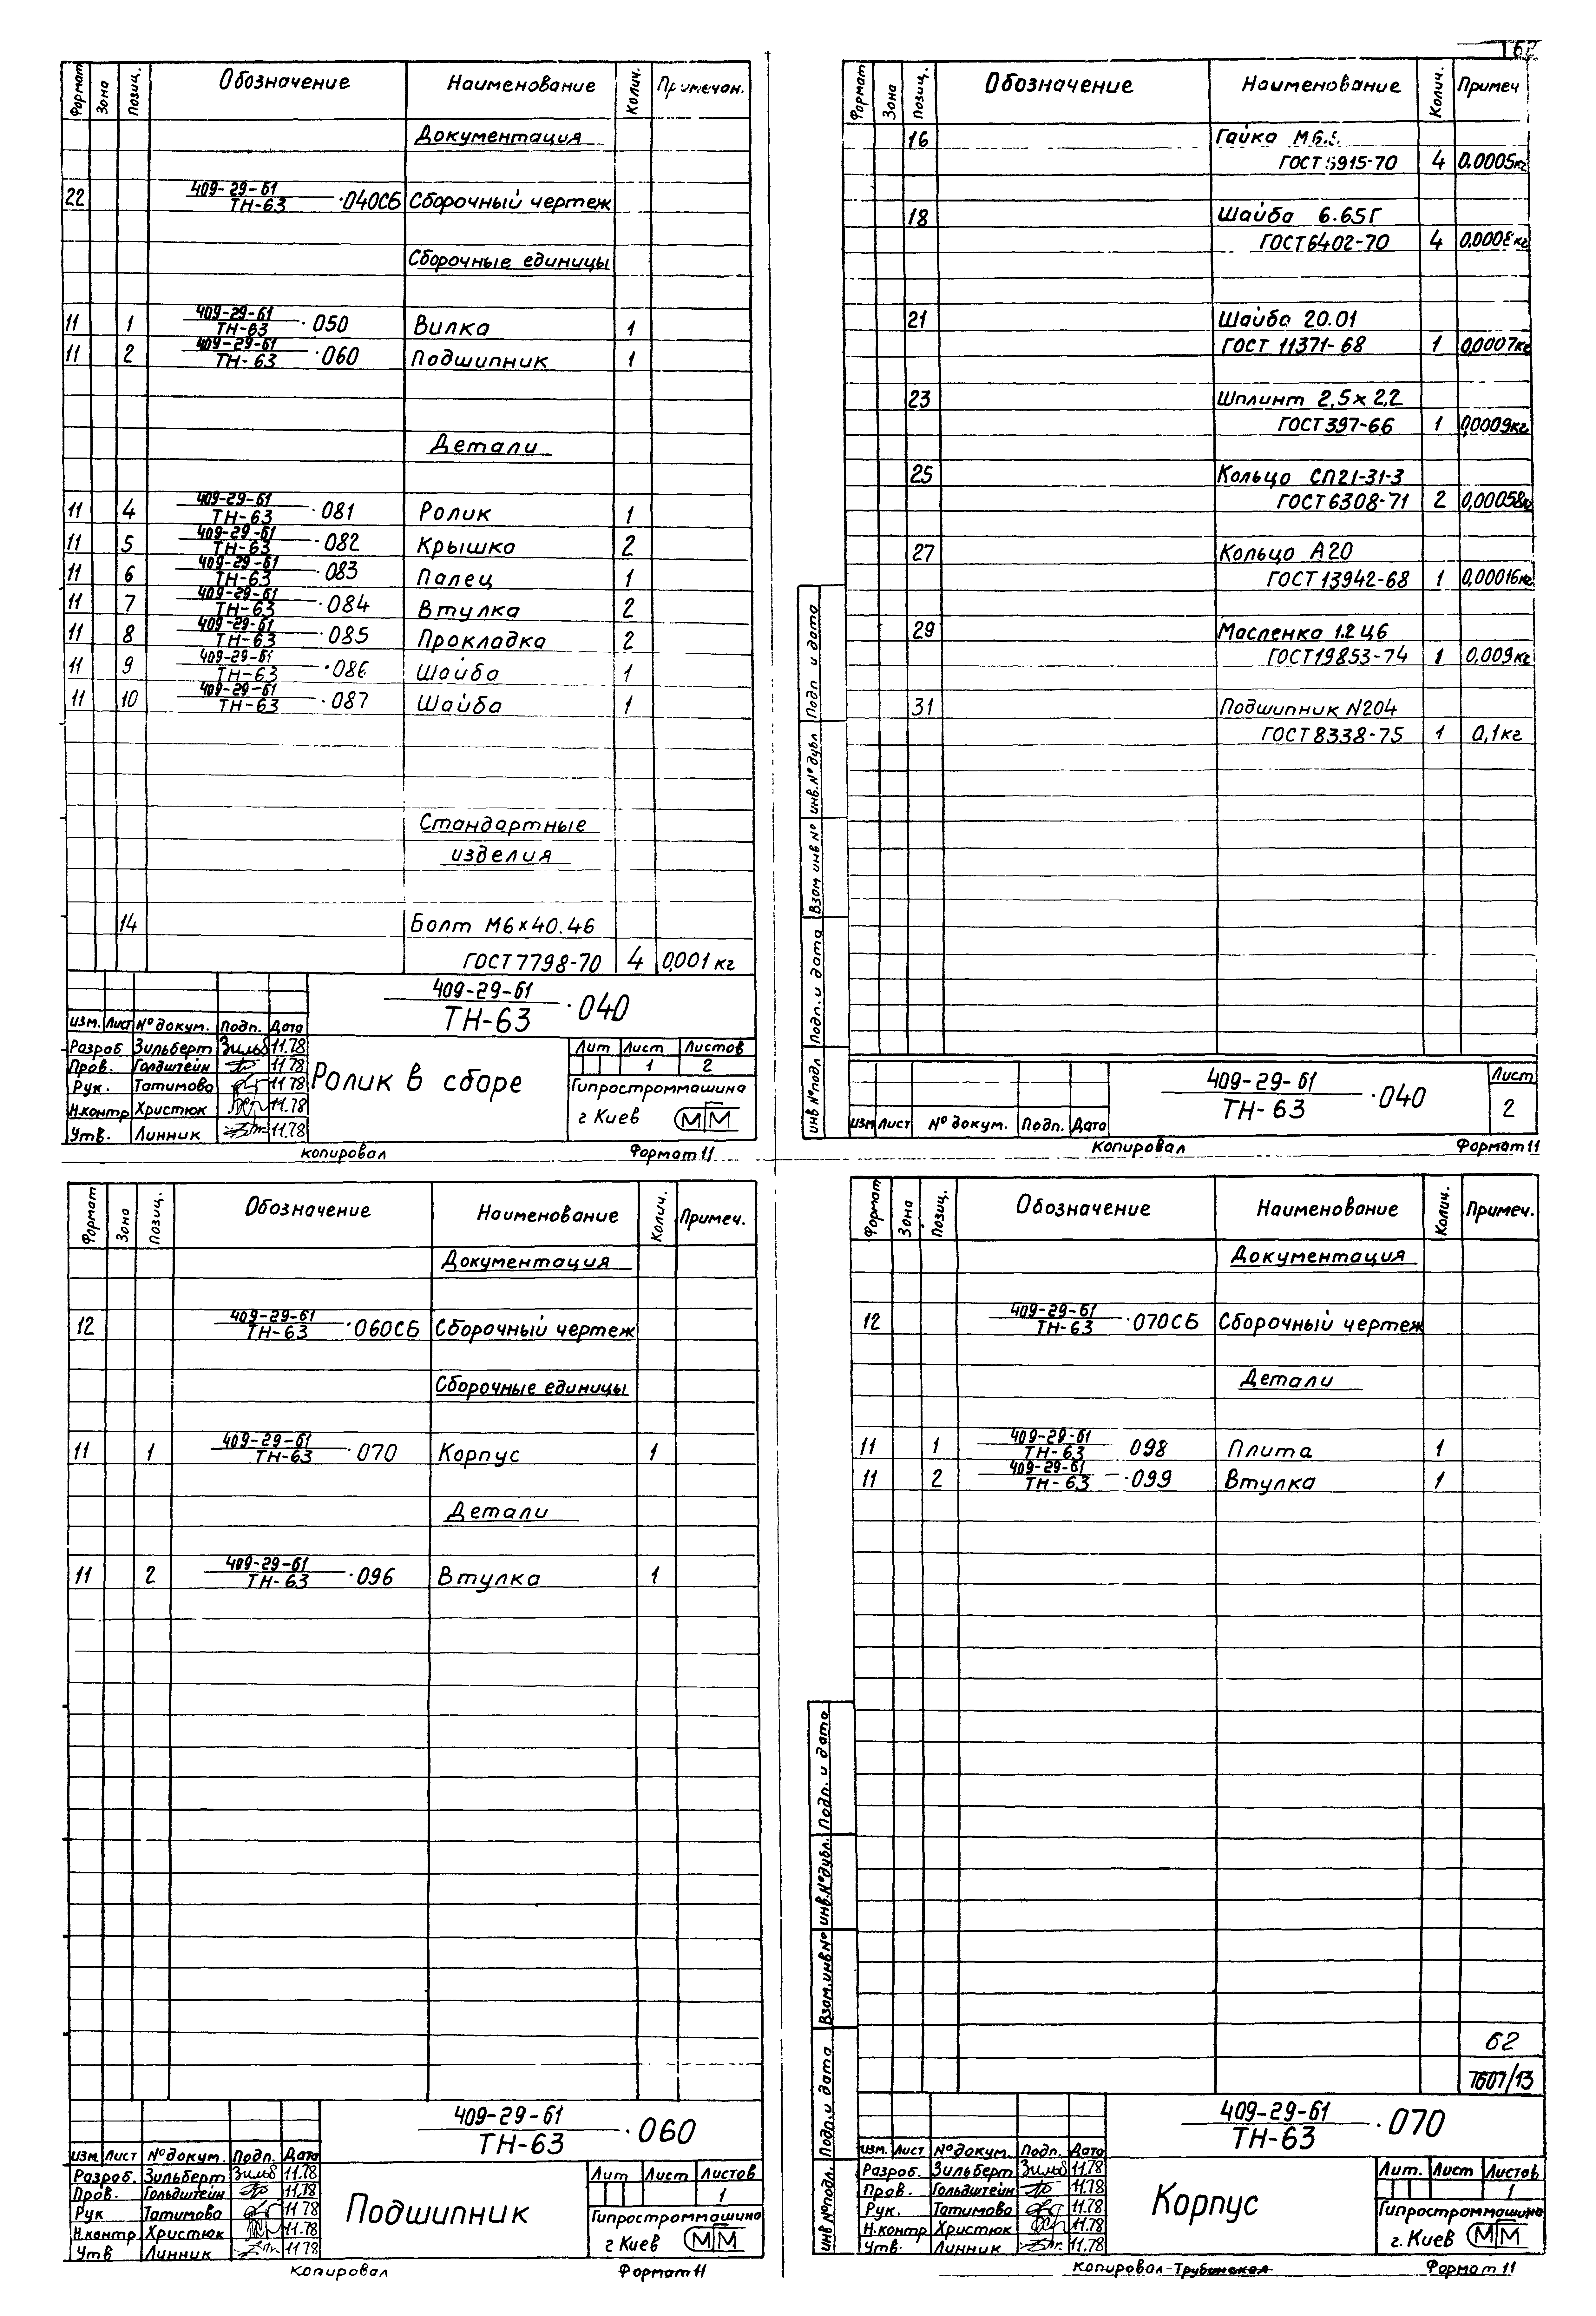 162
Формат Зона Позиц. Обозначение Наименование Колич. Примечан.
Документация
22 409-29-61/ТН-63 ·040СБ Сборочный чертеж
Сборочные единицы
11 1 409-29-61/ТН-63 ·050 Вилка 1
11 2 409-29-61/ТН-63 ·060 Подшипник 1
Детали
11 4 409-29-61/ТН-63 ·081 Ролик 1
11 5 409-29-61/ТН-63 ·082 Крышка 2
11 6 409-29-61/ТН-63 ·083 Палец 1
11 7 409-29-61/ТН-63 ·084 Втулка 2
11 8 409-29-61/ТН-63 ·085 Прокладка 2
11 9 409-29-61/ТН-63 ·086 Шайба 1
11 10 409-29-61/ТН-63 ·087 Шайба 1
Стандартные
изделия
14 Болт М6×40.46
ГОСТ 7798-70 4 0,001 кг
409-29-61/ТН-63 ·040
Изм. Лист № докум. Подп. Дата
Разраб Зильберт Зильб 11.78
Пров. Голдштейн 11 78
Рук. Татимова 11 78
Н.контр Христюк 11.78
Утв. Линник 11.78
Ролик в сборе
Лит Лист Листов
1 2
Гипростроммашина
г Киев ММ
Копировал Формат 11
Формат Зона Позиц. Обозначение Наименование Колич. Примеч
16 Гайка М6.
ГОСТ 5915-70 4 0.0005кг
18 Шайба 6.65Г
ГОСТ 6402-70 4 0,0008кг
21 Шайба 20.01
ГОСТ 11371-68 1 0,0007кг
23 Шплинт 2,5×22
ГОСТ 397-66 1 0,0009кг
25 Кольцо СП21-31-3
ГОСТ 6308-71 2 0,00058кг
27 Кольцо А20
ГОСТ 13942-68 1 0,00016кг
29 Масленка 1.2 Ц6
ГОСТ 19853-74 1 0,009кг
31 Подшипник N204
ГОСТ 8338-75 1 0,1кг
Подп и дата
инв.№ дубл
Взам инв №
Подп. и дата
инв № подл
409-29-61/ТН-63 ·040
Лист
2
Изм Лист № докум. Подп. Дата
Копировал Формат 11
Формат Зона Позиц. Обозначение Наименование Колич. Примеч.
Документация
12 409-29-61/ТН-63 ·060СБ Сборочный чертеж
Сборочные единицы
11 1 409-29-61/ТН-63 ·070 Корпус 1
Детали
11 2 409-29-61/ТН-63 ·096 Втулка 1
409-29-61/ТН-63 ·060
Изм. Лист № докум. Подп. Дата
Разраб. Зильберт Зильб 11.78
Пров. Гольдштейн 11,78
Рук Татимова 11 78
Н.контр Христюк 11.78
Утв Линник 11 78
Подшипник
Лит Лист Листов
1
Гипростроммашина
г Киев ММ
Копировал Формат 11
Формат Зона Позиц. Обозначение Наименование Колич. Примеч.
Документация
12 409-29-61/ТН-63 ·070СБ Сборочный чертеж
Детали
11 1 409-29-61/ТН-63 098 Плита 1
11 2 409-29-61/ТН-63 ·099 Втулка 1
62
7607/13
Подп. и дата
инв.№ дубл.
Взам.инв №
Подп. и дата
инв № подл.
409-29-61/ТН-63 ·070
Изм. Лист № докум. Подп. Дата
Разраб. Зильберт Зильб 11.78
Пров. Гольдштейн 11.78
Рук. Татимова 11.78
Н.контр Христюк 11.78
Утв. Линник 11.78
Корпус
Лит. Лист Листов
1
Гипростроммашина
г. Киев ММ
Копировал-Трубинская Формат 11